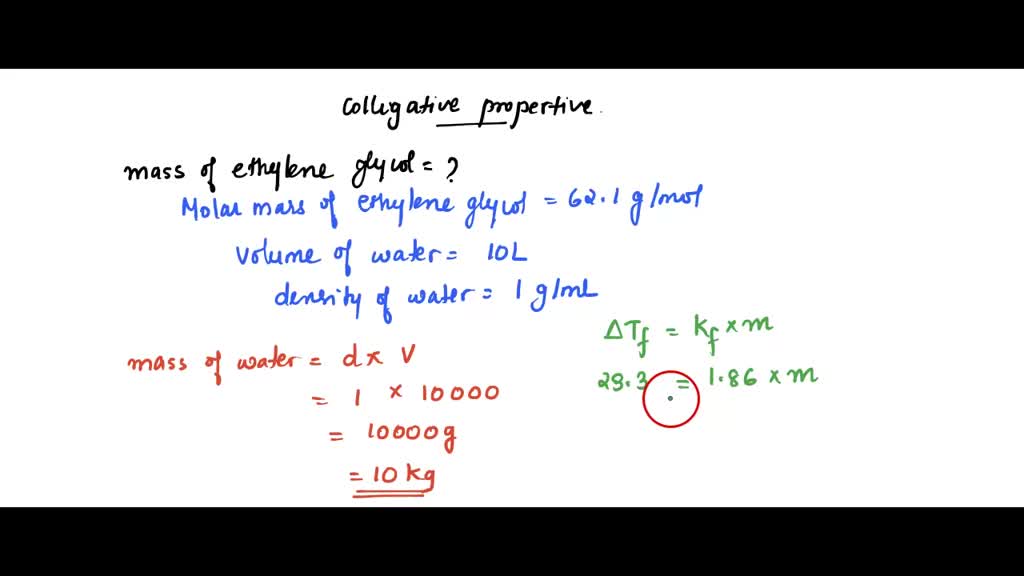 Colligative propertive.
mass of ethylene glycol = ?
Molar mass of ethylene glycol = 62.1 g/mol
Volume of water = 10L
density of water = 1 g/mL
mass of water = d x V
= 1 x 10000
= 10000g
= 10 kg
ΔTf = Kf x m
23.3 = 1.86 x m